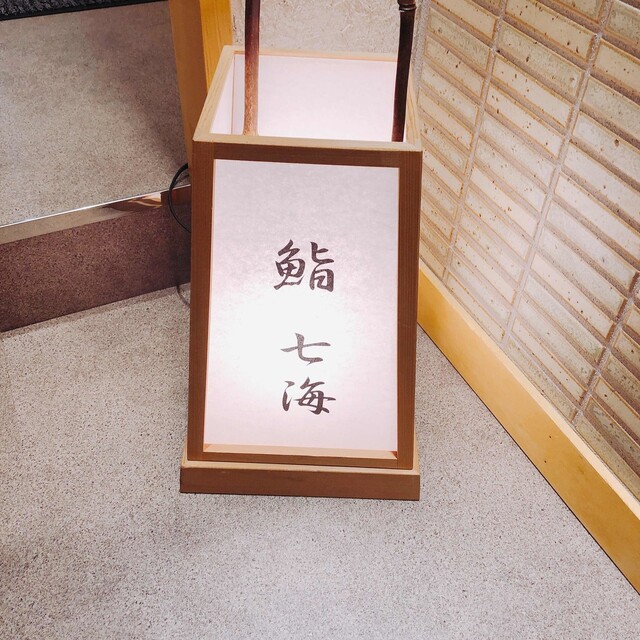 鮨
七海